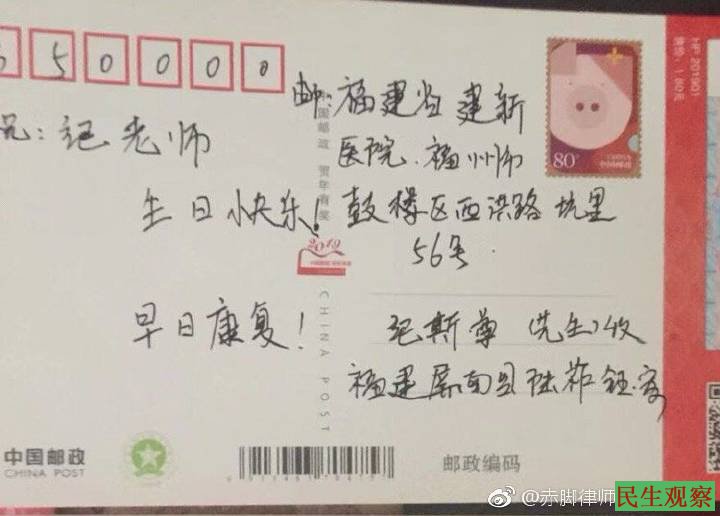 50000
: 纪老师
生日快乐!
早日康复!
邮: 福建省建新
医院. 福州师
鼓楼区西洪路坑里
56号.
纪斯尊 (先生) 收
福建屏南县陆祚钰寄
国邮政 贺年有奖
2019
CHINA POST
80分
HP 201901
售价: 1.80元
中国邮政
CHINA POST
邮政编码
@赤脚律师
民生观察